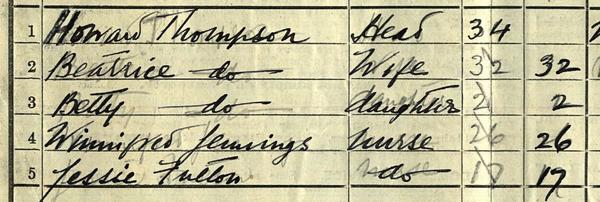 1 Howard Thompson Head 34
2 Beatrice do Wife 32 32
3 Betty do daughter 2 2
4 Winnifred Jennings nurse 26 26
5 Jessie Fulton do 17 17